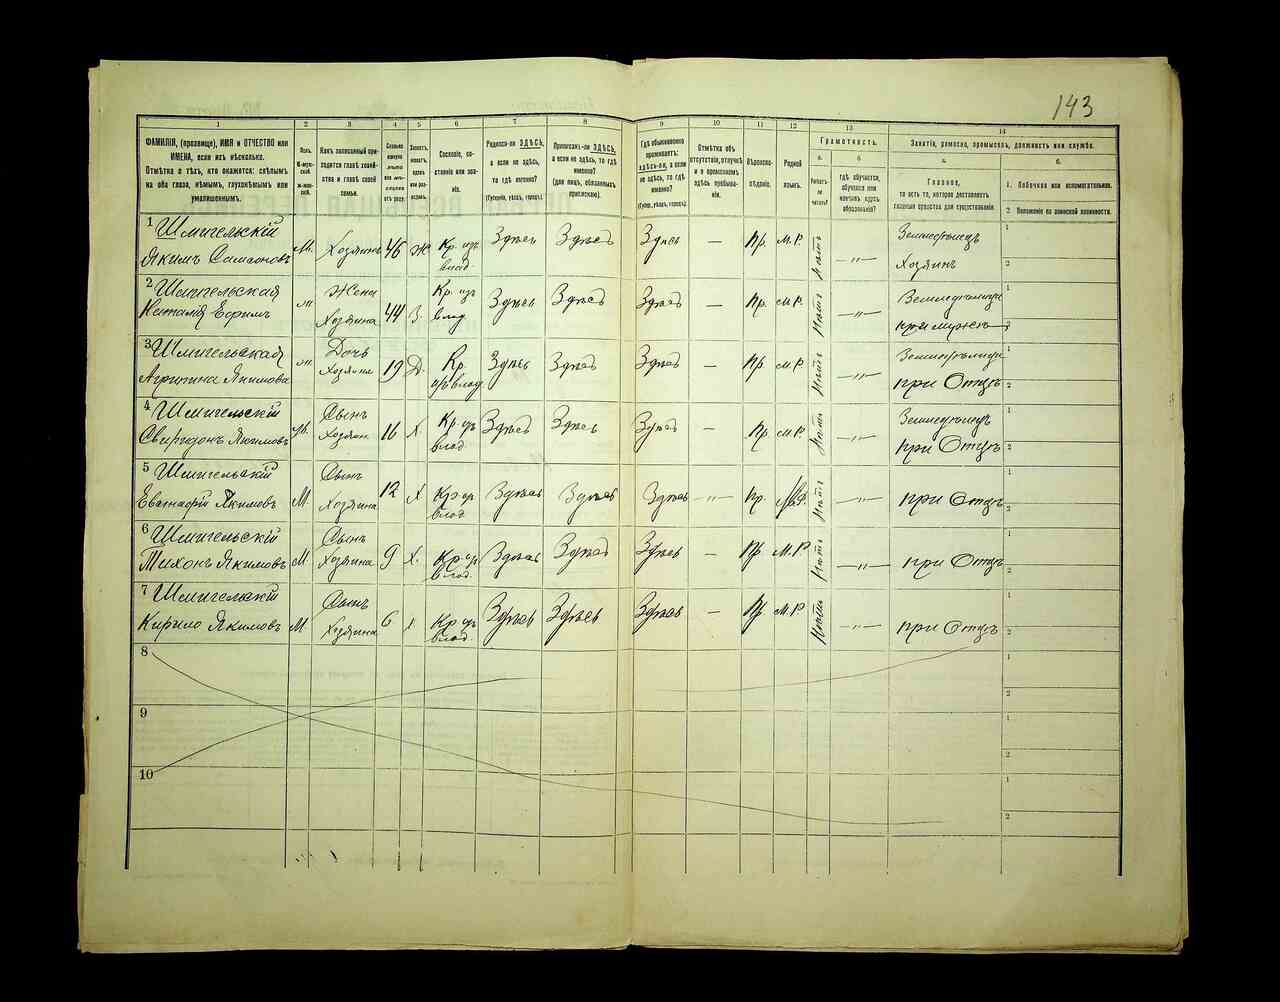 143
1 2 3 4 5 6 7 8 9 10 11 12 13 14
ФАМИЛІЯ, (прозвище), ИМЯ и ОТЧЕСТВО или
ИМЕНА, если ихъ нѣсколько.
Отмѣтка о тѣхъ, кто окажется: слѣпымъ
на оба глаза, нѣмымъ, глухонѣмымъ или
умалишеннымъ.
Полъ.
М-муж-
ской.
Ж-жен-
скій.
Какъ записанный при-
ходится главѣ хозяй-
ства и главѣ своей
семьи.
Сколько
минуло
лѣтъ
или мѣ-
сяцевъ
отъ роду.
Холостъ,
женатъ,
вдовъ
или раз-
веденъ.
Сословіе, со-
стояніе или зва-
ніе.
Родился-ли ЗДѢСЬ,
а если не здѣсь,
то гдѣ именно?
(Губернія, уѣздъ, городъ).
Приписанъ-ли ЗДѢСЬ,
а если не здѣсь, то гдѣ
именно?
(для лицъ, обязанныхъ
припискою).
Гдѣ обыкновенно
проживаетъ:
здѣсь-ли, а если
не здѣсь, то гдѣ
именно?
(Губер., уѣздъ, городъ).
Отмѣтка объ
отсутствіи, отлучкѣ
и о временномъ
здѣсь пребыва-
ніи.
Вѣроиспо-
вѣданіе.
Родной
языкъ.
Грамотность.
а.
Умѣетъ-
ли
читать?
б.
гдѣ обучается,
обучался или
кончилъ курсъ
образованія?
Занятіе, ремесло, промыселъ, должность или служба.
а.
Главное,
то есть то, которое доставляетъ
главныя средства для существованія.
б.
1. Побочное или вспомогательное.
2. Положеніе по воинской повинности.
1 Шмигельскій
Якимъ Самсоновъ М. Хозяинъ 46 Ж Кр. изъ влад. Здѣсь Здѣсь Здѣсь — Пр. М.Р. Нѣтъ —"— Земледѣлецъ Хозяинъ 1 2
2 Шмигельская
Наталія Ефим. ж Жена Хозяина 44 З. Кр. из влад. Здѣсь Здѣсь Здѣсь — Пр. М.Р. Нѣтъ —"— при мужѣ 1 2
3 Шмигельская
Агрипина Якимова ж Дочь Хозяина 19 Д. Кр. изъ влад. Здѣсь Здѣсь Здѣсь — Пр. М.Р. Нѣтъ —"— при Отцѣ 1 2
4 Шмигельскій
Свиридонъ Якимовъ М. Сынъ Хозяин 16 Х Кр. изъ влад. Здѣсь Здѣсь Здѣсь — Пр. М.Р. Нѣтъ —"— Земледѣлецъ при Отцѣ 1 2
5 Шмигельскій
Евстафій Якимовъ М Сынъ Хозяина 12 Х Кр. из влад. Здѣсь Здѣсь Здѣсь —"— Пр. М.Р. Нѣтъ —"— при Отцѣ 1 2
6 Шмигельскій
Тихонъ Якимовъ М. Сынъ Хозяина 9 Х. Кр. из влад. Здѣсь Здѣсь Здѣсь — Пр М.Р Нѣтъ —"— при Отцѣ 1 2
7 Шмигельскій
Кирило Якимовъ М Сынъ Хозяина 6 Х Кр из влад. Здѣсь Здѣсь Здѣсь — Пр М.Р. Нѣтъ —"— при Отцѣ 1 2
8 1 2
9 1 2
10 1 2